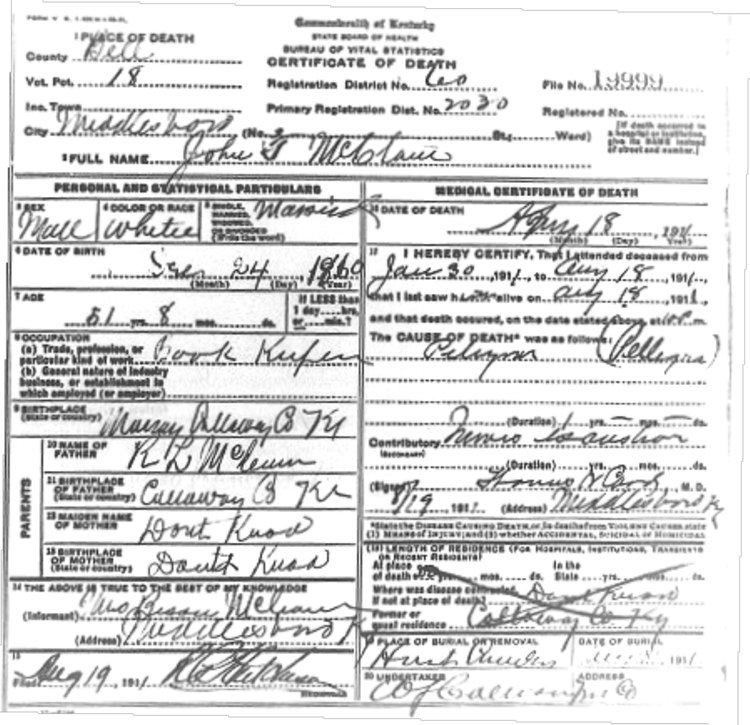 Commonwealth of Kentucky
STATE BOARD OF HEALTH
BUREAU OF VITAL STATISTICS
CERTIFICATE OF DEATH
1 PLACE OF DEATH
County Bell
Vot. Pct. 18
Inc. Town
City Middlesboro (No. St. Ward)
Registration District No.
Primary Registration Dist. No. 2030
File No. 19999
Registered No.
[If death occurred in a hospital or institution, give its NAME instead of street and number.]
2 FULL NAME John
PERSONAL AND STATISTICAL PARTICULARS
3 SEX Male
4 COLOR OR RACE White
5 SINGLE, MARRIED, WIDOWED, OR DIVORCED (Write the word) Married
6 DATE OF BIRTH
24, 1860
(Month) (Day) (Year)
7 AGE
51 yrs. 8 mos. ds.
If LESS than 1 day hrs. or min.?
8 OCCUPATION
(a) Trade, profession, or particular kind of work Book Keeper
(b) General nature of industry business, or establishment in which employed (or employer)
9 BIRTHPLACE (State or country) Murray Callaway Co Ky
PARENTS
10 NAME OF FATHER R L
11 BIRTHPLACE OF FATHER (State or country) Callaway Co Ky
12 MAIDEN NAME OF MOTHER Dont Know
13 BIRTHPLACE OF MOTHER (State or country) Dont Know
14 THE ABOVE IS TRUE TO THE BEST OF MY KNOWLEDGE
(Informant) Mrs
(Address) Middlesboro Ky
15
Filed Aug 19, 1911
REGISTRAR
MEDICAL CERTIFICATE OF DEATH
16 DATE OF DEATH
18, 1911
(Month) (Day) (Year)
17 I HEREBY CERTIFY, That I attended deceased from
Jan 30, 1911, to Aug 18, 1911,
that I last saw h alive on Aug 18, 1911,
and that death occurred, on the date stated above, at m.
The CAUSE OF DEATH* was as follows:
(Pellagra)
(Duration) 1 yrs. mos. ds.
Contributory
(SECONDARY)
(Duration) yrs. mos. ds.
(Signed) M. D.
8/19, 1911 (Address) Middlesboro Ky
*State the DISEASE CAUSING DEATH, or, in deaths from VIOLENT CAUSES, state (1) MEANS OF INJURY; and (2) whether ACCIDENTAL, SUICIDAL or HOMICIDAL
(18) LENGTH OF RESIDENCE (FOR HOSPITALS, INSTITUTIONS, TRANSIENTS OR RECENT RESIDENTS)
At place of death yrs. mos. ds. In the State yrs. mos. ds.
Where was disease contracted, if not at place of death? Dont Know
Former or usual residence Callaway Co Ky
19 PLACE OF BURIAL OR REMOVAL
DATE OF BURIAL
1911
20 UNDERTAKER
ADDRESS